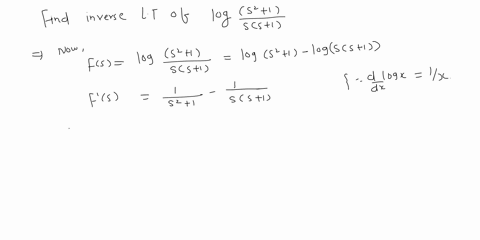 Find inverse LT of log (s²+1) / s(s+1)
⇒ Now,
F(s) = log (s²+1) / s(s+1) = log (s²+1) - log(s(s+1))
F'(s) = 1 / s²+1 - 1 / s(s+1) { ∵ d/dx logx = 1/x